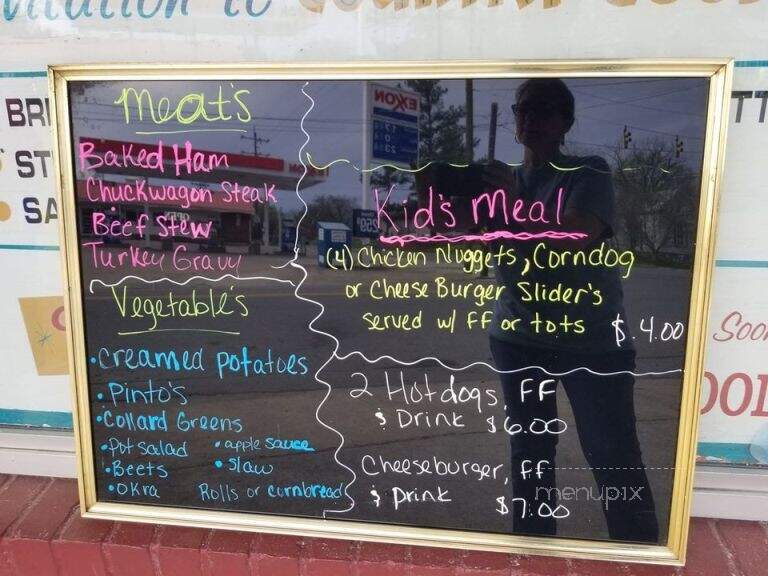 Meat's
Baked Ham
Chuckwagon Steak
Beef Stew
Turkey Gravy
Vegetable's
• Creamed potatoes
• Pinto's
• Collard Greens
• Pot Salad • apple sauce
• Beets • Slaw
• Okra Rolls or cornbread
Kid's Meal
(4) Chicken Nuggets, Corndog
or Cheese Burger Slider's
served w/ FF or tots $.4.00
2 Hotdogs, FF
& Drink $6.00
Cheeseburger, FF
& Drink $7.00
menupix
BRI
ST
SA
TT
Soo
OOL
EXXON